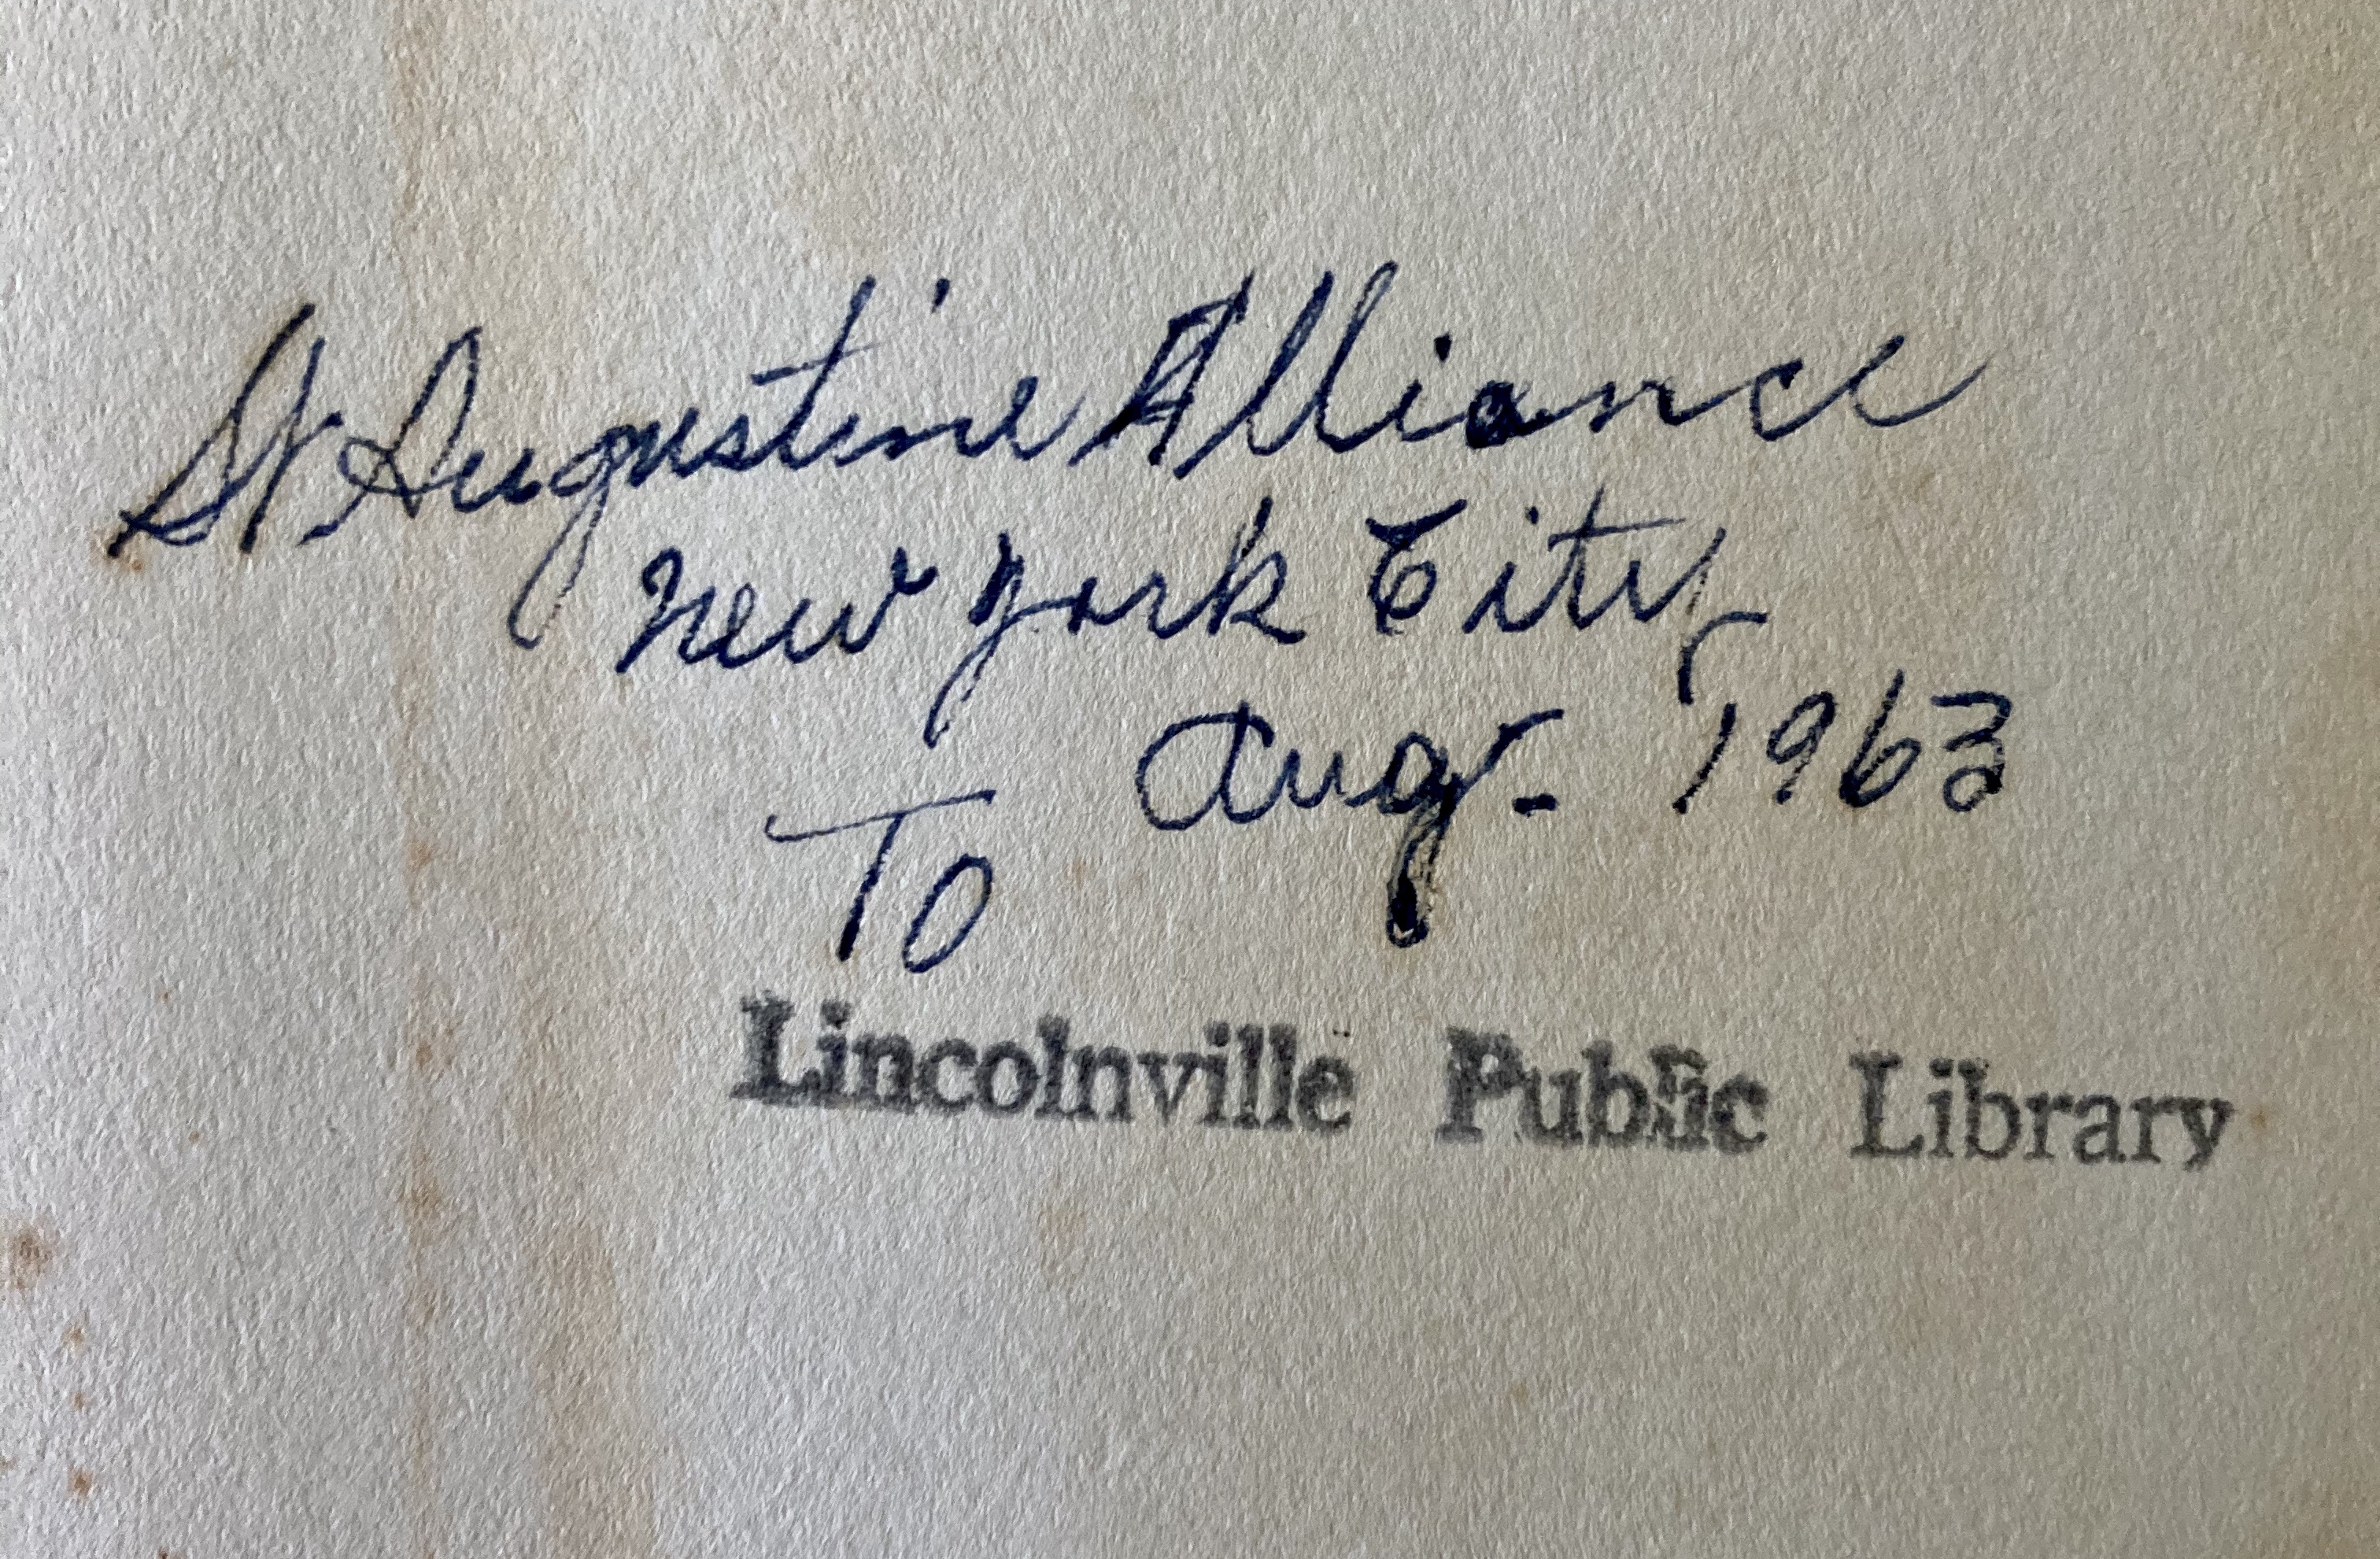 St Augustine Alliance
New York City
Aug. 1963
To
Lincolnville Public Library